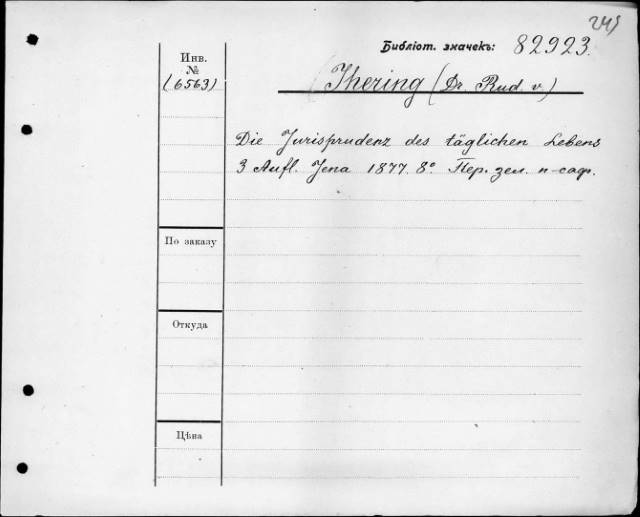 249
Библіот. значекъ: 82923.
Инв.
№
(6563)
Jhering (Dr. Rud. v.)
Die Jurisprudenz des täglichen Lebens
3 Aufl. Jena 1877. 8° Пер. зел. п-саф.
По заказу
Откуда
Цѣна